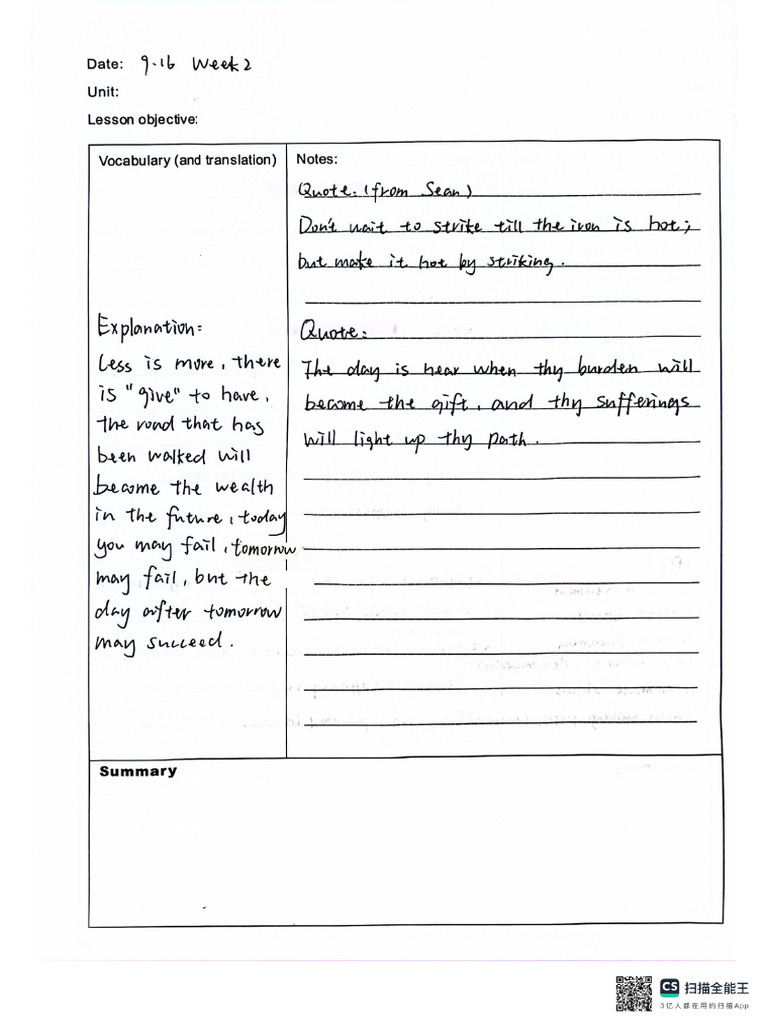 Date: 9.16 Week 2
Unit:
Lesson objective:
Vocabulary (and translation)
Explanation:
Less is more, there
is "give" to have,
the road that has
been walked will
become the wealth
in the future, today
you may fail, tomorrow
may fail, but the
day after tomorrow
may succeed.
Notes:
Quote: (from Sean)
Don't wait to strike till the iron is hot;
but make it hot by striking.
Quote:
The day is near when thy burden will
become the gift, and thy sufferings
will light up thy path.
Summary
CS 扫描全能王
3亿人都在用的扫描App